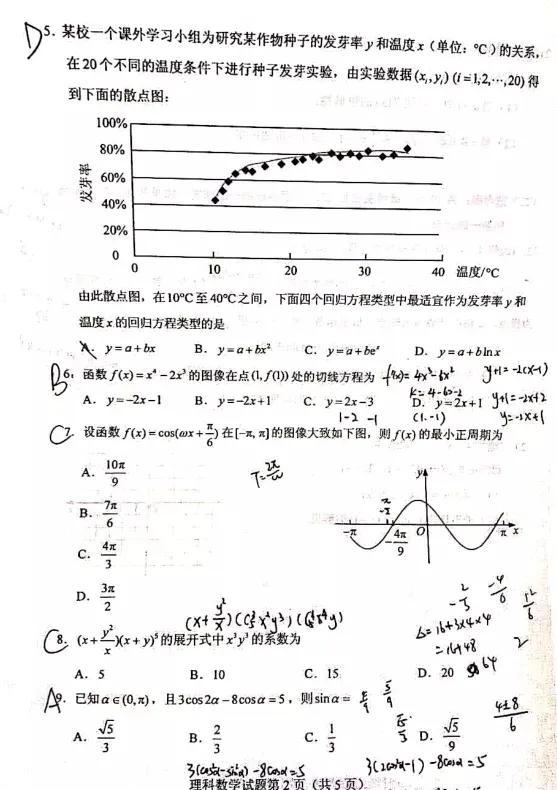 D5. 某校一个课外学习小组为研究某作物种子的发芽率 y 和温度 x（单位：℃）的关系,
在 20 个不同的温度条件下进行种子发芽实验，由实验数据 (xᵢ,yᵢ) (i=1,2,⋯,20) 得
到下面的散点图：
100%
80%
60%
40%
20%
0
发芽率
0 10 20 30 40 温度/℃
由此散点图，在 10℃ 至 40℃ 之间，下面四个回归方程类型中最适宜作为发芽率 y 和
温度 x 的回归方程类型的是
A. y=a+bx B. y=a+bx² C. y=a+beˣ D. y=a+blnx
B6. 函数 f(x)=x⁴-2x³ 的图像在点 (1, f(1)) 处的切线方程为 f'(x)=4x³-6x² y+1=-2(x-1)
k=4-6=-2
A. y=-2x-1 B. y=-2x+1 C. y=2x-3 D. y=2x+1 y+1=-2x+2
1-2 -1 (1,-1) y=-2x+1
C7. 设函数 f(x)=cos(ωx+π/6) 在 [-π, π] 的图像大致如下图，则 f(x) 的最小正周期为
A. 10π/9 T=2π/ω
B. 7π/6
C. 4π/3
D. 3π/2
y
-π -4π/9 O π x
C8. (x+y²/x)(x+y)⁵ 的展开式中 x³y³ 的系数为
Δ=16+3×4×4
=16+48
64
A. 5 B. 10 C. 15 D. 20
A9. 已知 α∈(0,π)，且 3cos2α-8cosα=5，则 sinα=
4±8/6
A. √5/3 B. 2/3 C. 1/3 D. √5/9
3(cos²α-sin²α)-8cosα=5 3(2cos²α-1)-8cosα=5
理科数学试题第 2 页（共 5 页）